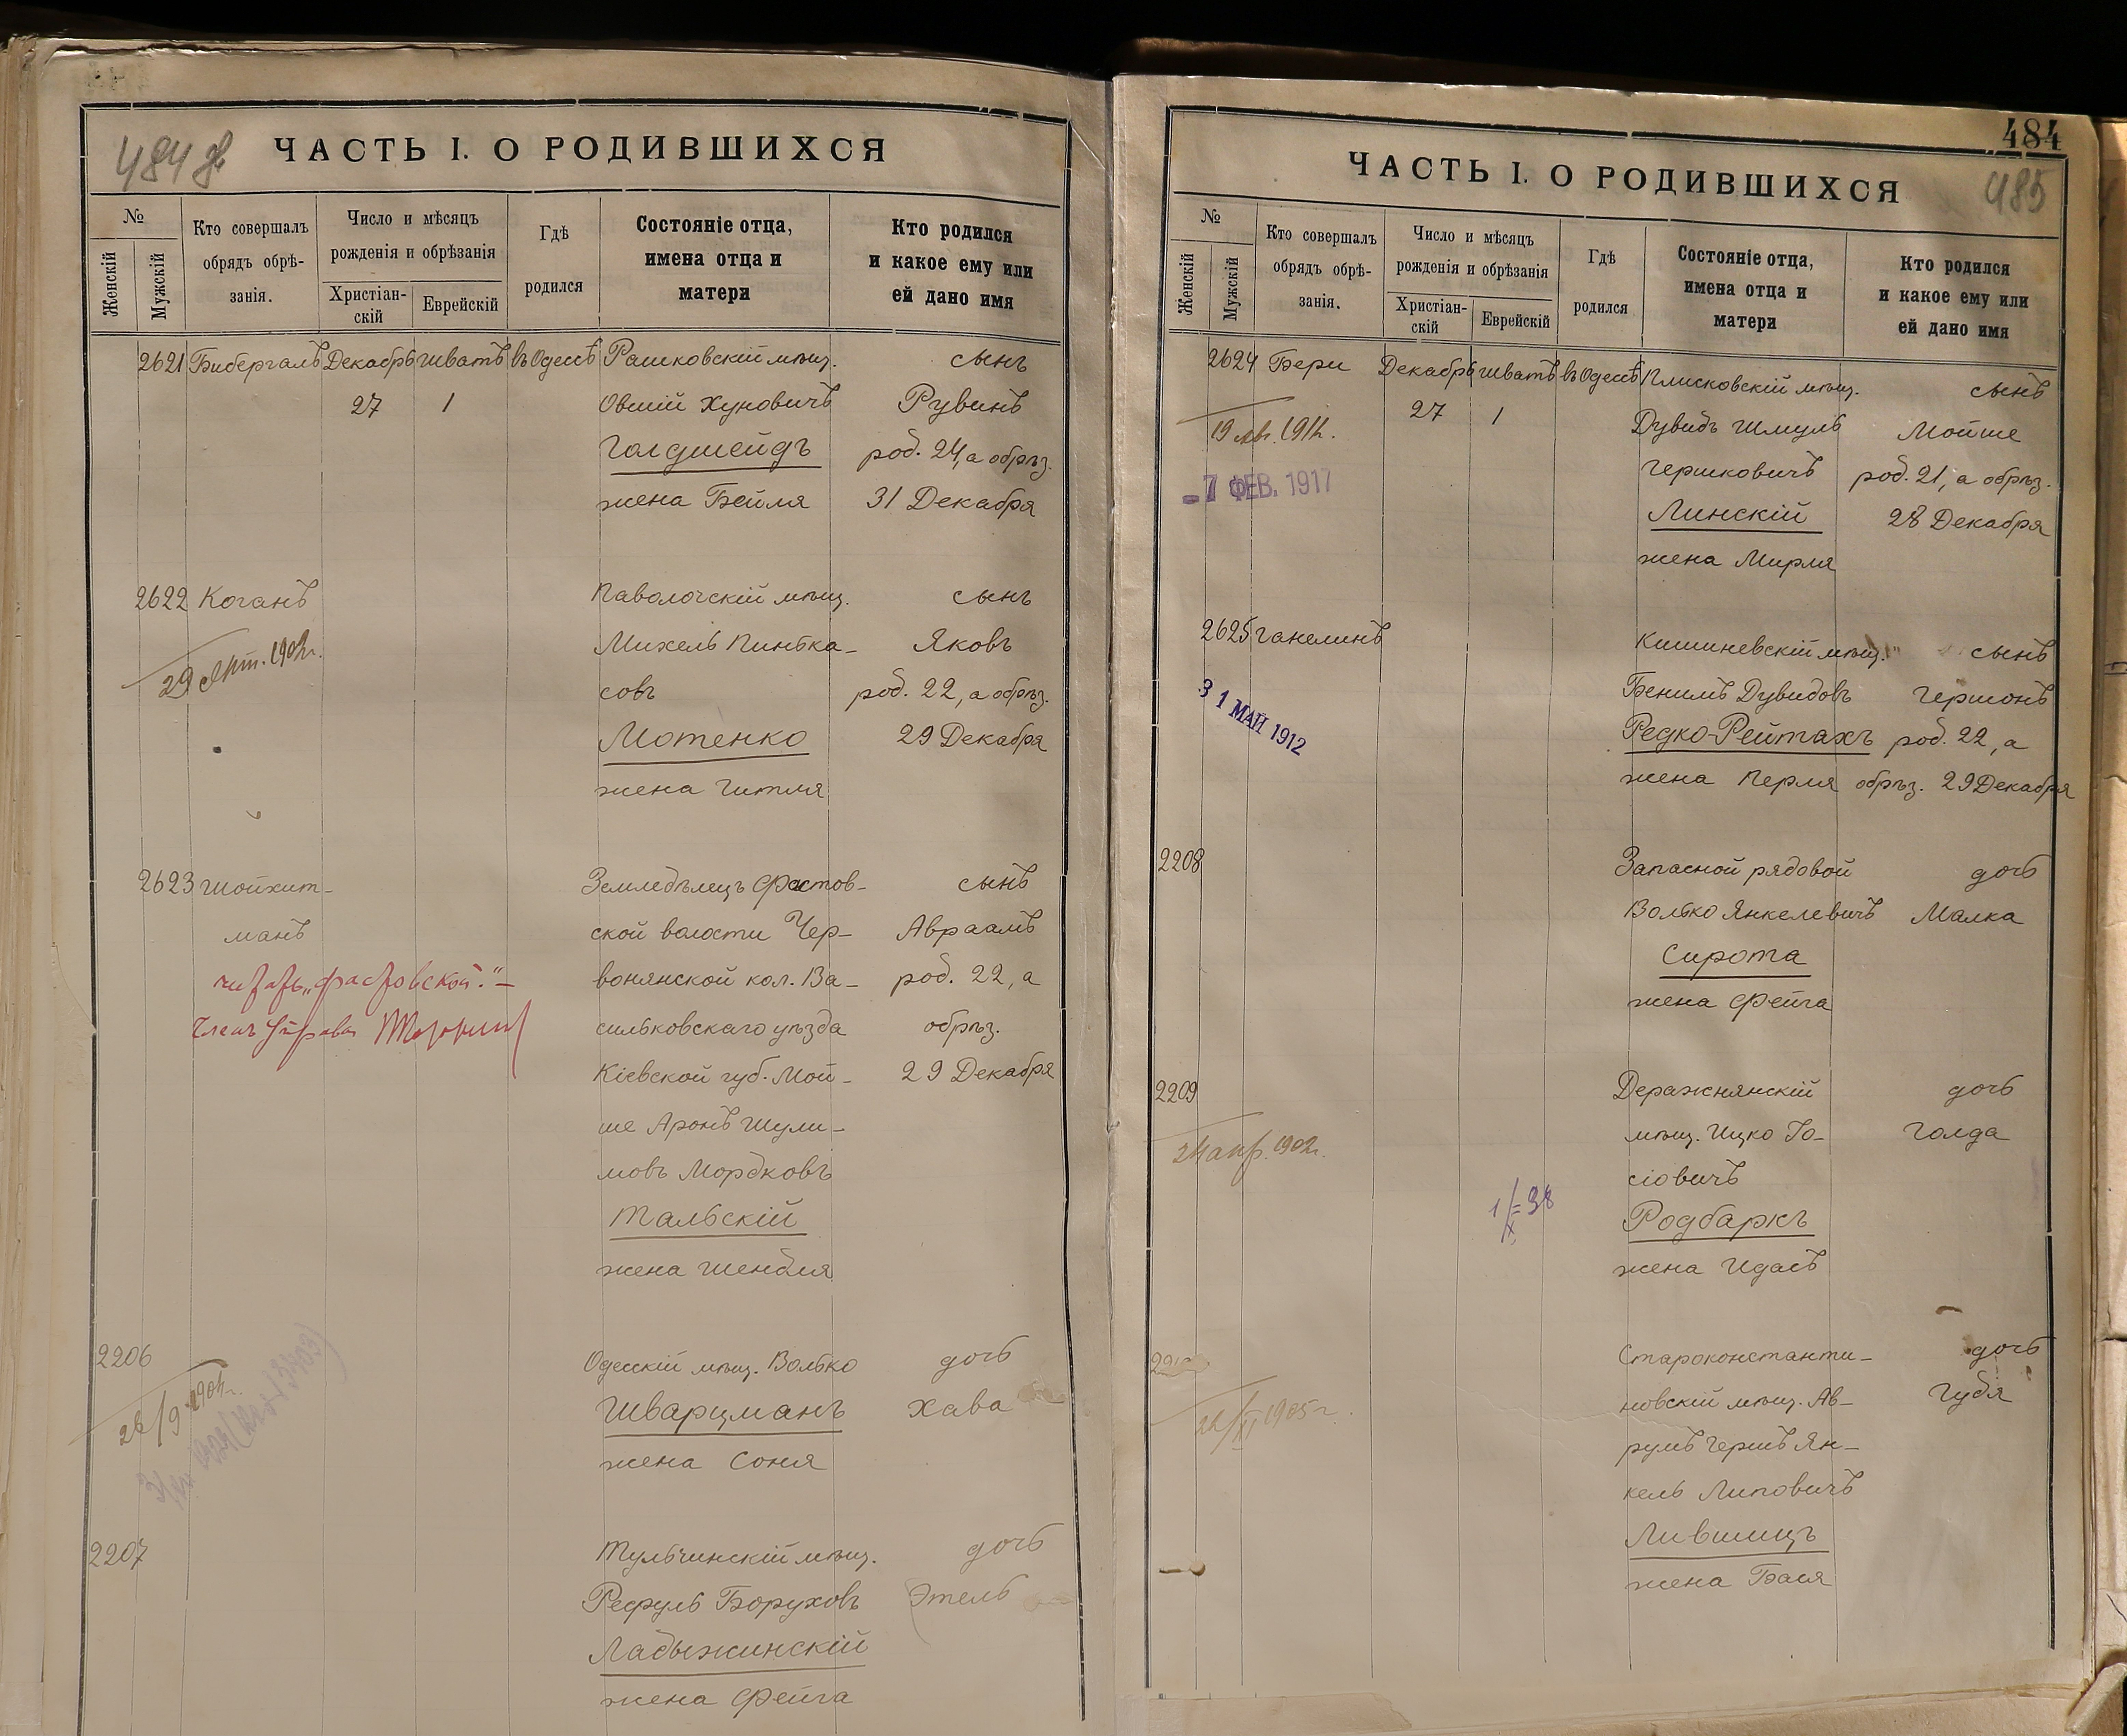 484 об
ЧАСТЬ I. О РОДИВШИХСЯ
№
Женскій
Мужскій
Кто совершалъ
обрядъ обрѣ-
занія.
Число и мѣсяцъ
рожденія и обрѣзанія
Христіан-
скій
Еврейскій
Гдѣ
родился
Состояніе отца,
имена отца и
матери
Кто родился
и какое ему или
ей дано имя
2621 Бибергалъ Декабрь Шватъ въ Одессѣ Рашковскій мѣщ. сынъ
27 1 Овшій Хуновичъ Рувинъ
Голдшейдъ род. 24, а обрѣз.
жена Бейля 31 Декабря
2622 Коганъ Паволочскій мѣщ. сынъ
Михель Пинька- Яковъ
29 1902г.
совъ род. 22, а обрѣз.
Мотенко 29 Декабря
жена Гитля
2623 Шойхит- Земледѣлецъ Фастов- сынъ
манъ ской волости Чер- Авраамъ
читать „Фастовской."- вонянской кол. Ва- род. 22, а
Членъ Управы сильковскаго уѣзда обрѣз.
Кіевской губ. Мой- 29 Декабря
ше Аронъ Шули-
мовъ Мордковъ
Тальскій
жена Шендля
2206 Одесскій мѣщ. Волько дочь
26/9 1904г.
Шварцманъ Хава
жена Соня
2207 Тульчинскій мѣщ. дочь
Рефуль Боруховъ Этель
Ладыжинскій
жена Фейга
484
485
ЧАСТЬ I. О РОДИВШИХСЯ
№
Женскій
Мужскій
Кто совершалъ
обрядъ обрѣ-
занія.
Число и мѣсяцъ
рожденія и обрѣзанія
Христіан-
скій
Еврейскій
Гдѣ
родился
Состояніе отца,
имена отца и
матери
Кто родился
и какое ему или
ей дано имя
2624 Бери Декабрь Шватъ въ Одессѣ Плисковскій мѣщ. сынъ
27 1 Дувидъ Шмуль Мойше
19
Гершковичъ род. 21, а обрѣз.
-7 ФЕВ. 1917
Линскій 28 Декабря
жена Мирля
2625 Ганелинъ Кишиневскій мѣщ. сынъ
31 МАЙ 1912
Бенимъ Дувидовъ Гершонъ
Редко-Рейтахъ род. 22, а
жена Перля обрѣз. 29 Декабря
2208 Запасной рядовой дочь
Волько Янкелевичъ Малка
Сирота
жена Фейга
2209 Деражнянскій дочь
мѣщ. Ицко Іо- Голда
24 апр. 1902г.
сіовичъ
Родбаркъ
жена Идась
Староконстанти- дочь
новскій мѣщ. Ав- Губя
22/XI 1905 г.
румъ Гершъ Ян-
кель Липовичъ
Лившицъ
жена Бася